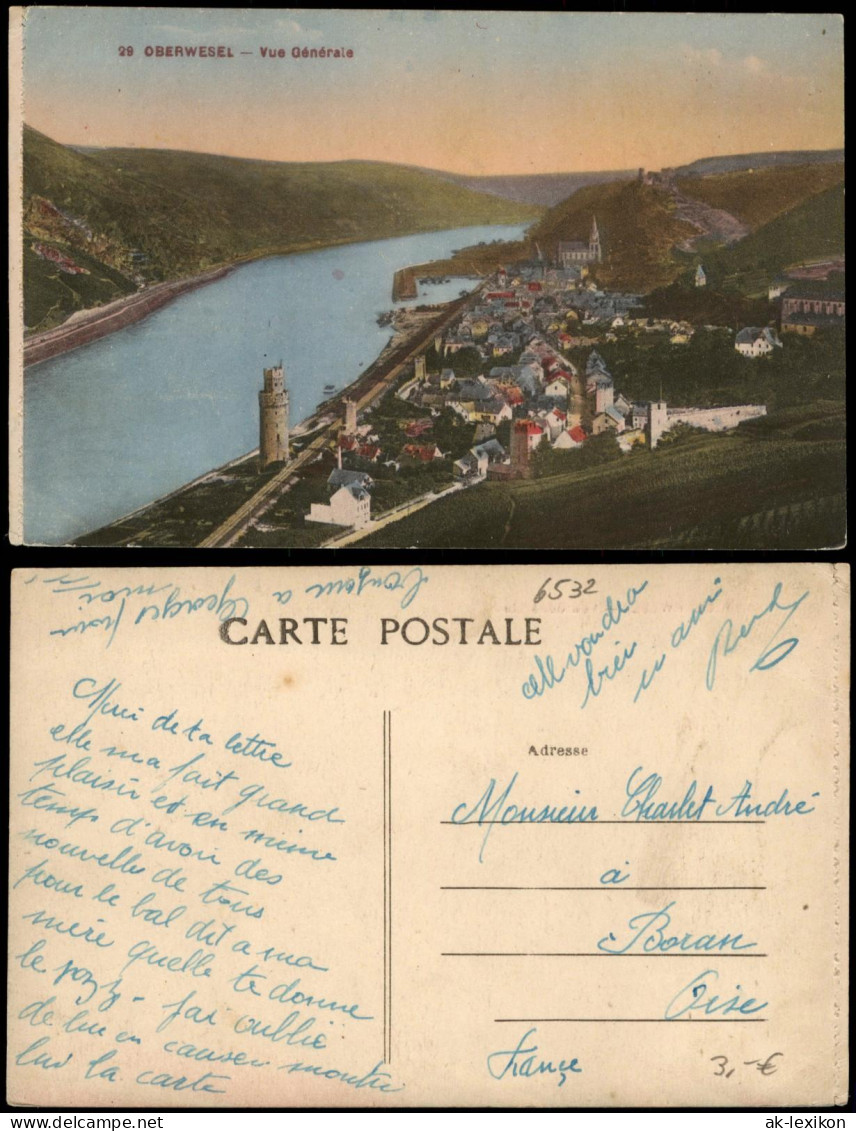 29 OBERWESEL — Vue Générale
6532
CARTE POSTALE
elle voudra
bien
un ami
Bonjour a Georges
Merci de ta lettre
elle m a fait grand
plaisir et en même
temps d'avoir des
nouvelles de tous
pour le bal dit a ma
mère quelle te donne
le j'ai oublié
de lui en causer montre
lui la carte
Adresse
Monsieur Charlet André
à
Boran
Oise
France
3,-€
ak-ansichtskarten.de
ak-lexikon.de